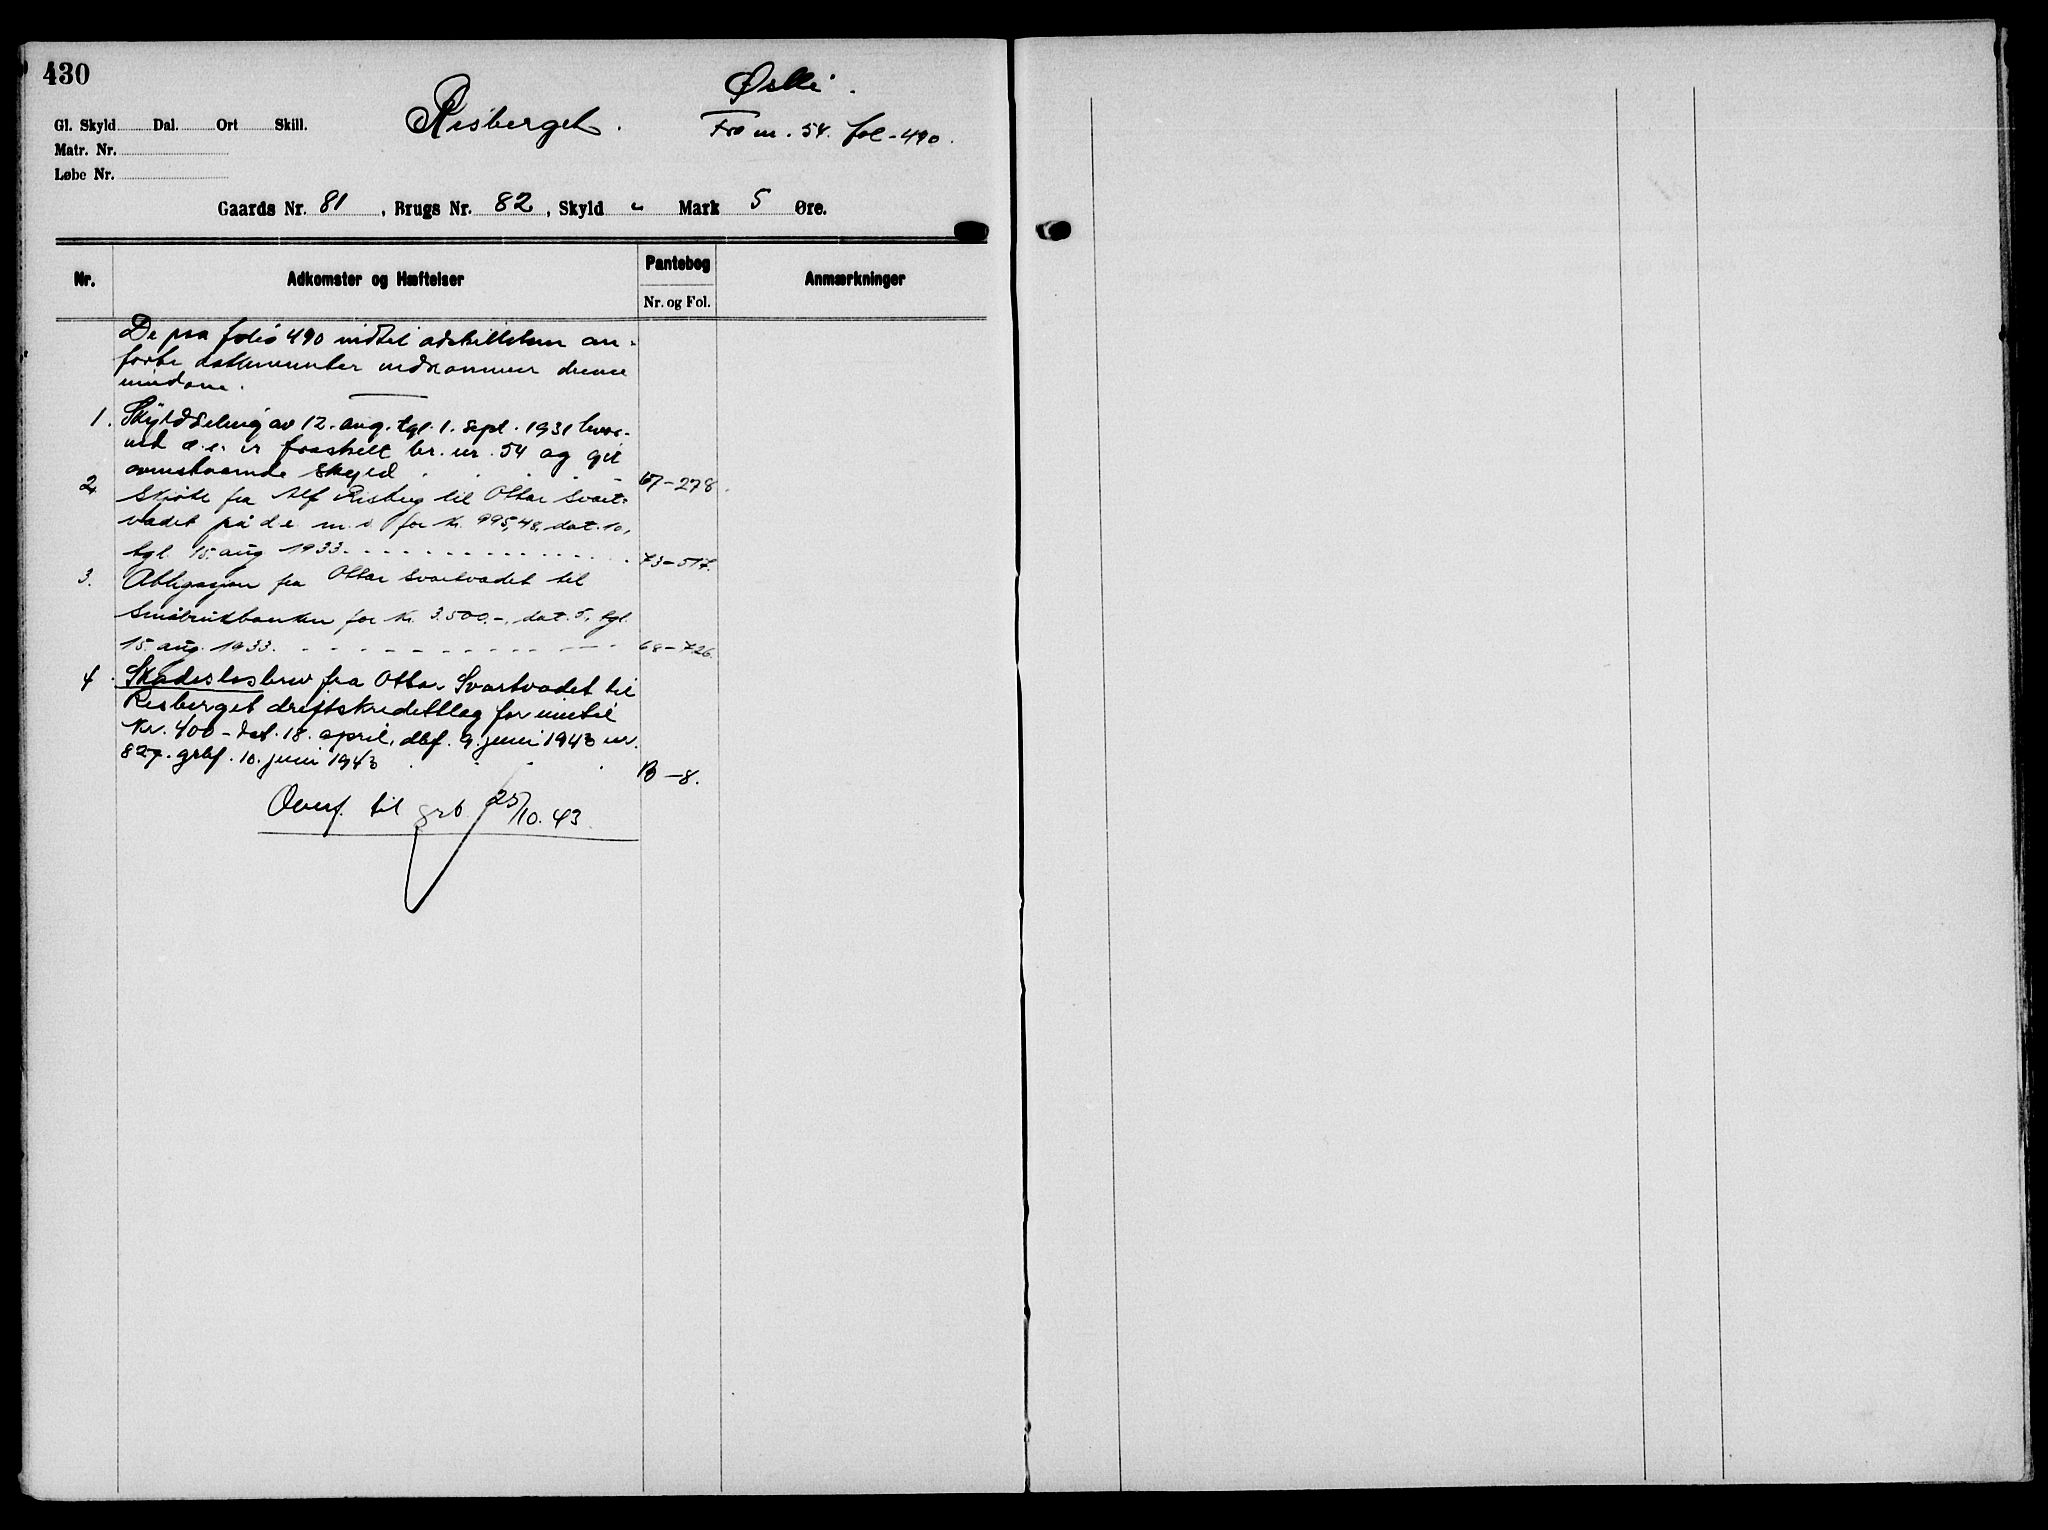 430
Østli.
Risberget.
Fra nr. 54. fol-490.
Gl. Skyld Dal. Ort Skill.
Matr. Nr.
Løbe Nr.
Gaards Nr. 81, Brugs Nr. 82, Skyld - Mark 5 Øre.
Nr. Adkomster og Hæftelser Pantebog Anmærkninger
Nr. og Fol.
De paa folio 490 indtil adskillelsen an-
førte dokumenter vedkommer denne
eiendom.
1. Skylddeling av 12. aug. tgl. 1. sept. 1931 hvor-
ved d.e. er fraskilt br. nr. 54 og git
ovenstaaende skyld 67-278.
2. Skjøte fra Alf Risberg til Ottar Svart-
vadet på d.e. m.v. for kr. 995,48, dat. 10,
tgl. 15. aug 1933. 73-517.
3. Obligasjon fra Ottar Svartvadet til
Småbrukbanken for kr. 3.500.-, dat. 5, tgl.
15. aug. 1933. 68-726.
4. Skadesløsbrev fra Ottar Svartvadet til
Risberget driftskredittlag for inntil
Kr. 400- dat. 18. april, dbf. 9. juni 1943 nr.
827. grbf. 10. juni 1943 B-8.
Overf. til grb 25/10. 43.